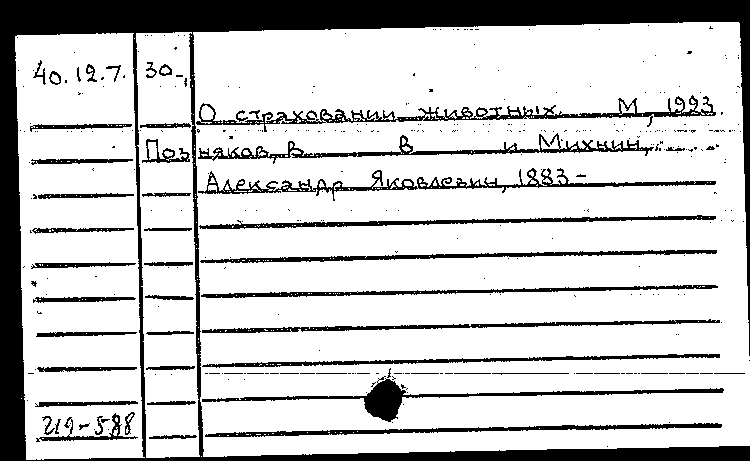 40.12.7. 30-,
О страховании животных М, 1923
Позняков, В В и Михнин,
Александр Яковлевич, 1883-
219-588